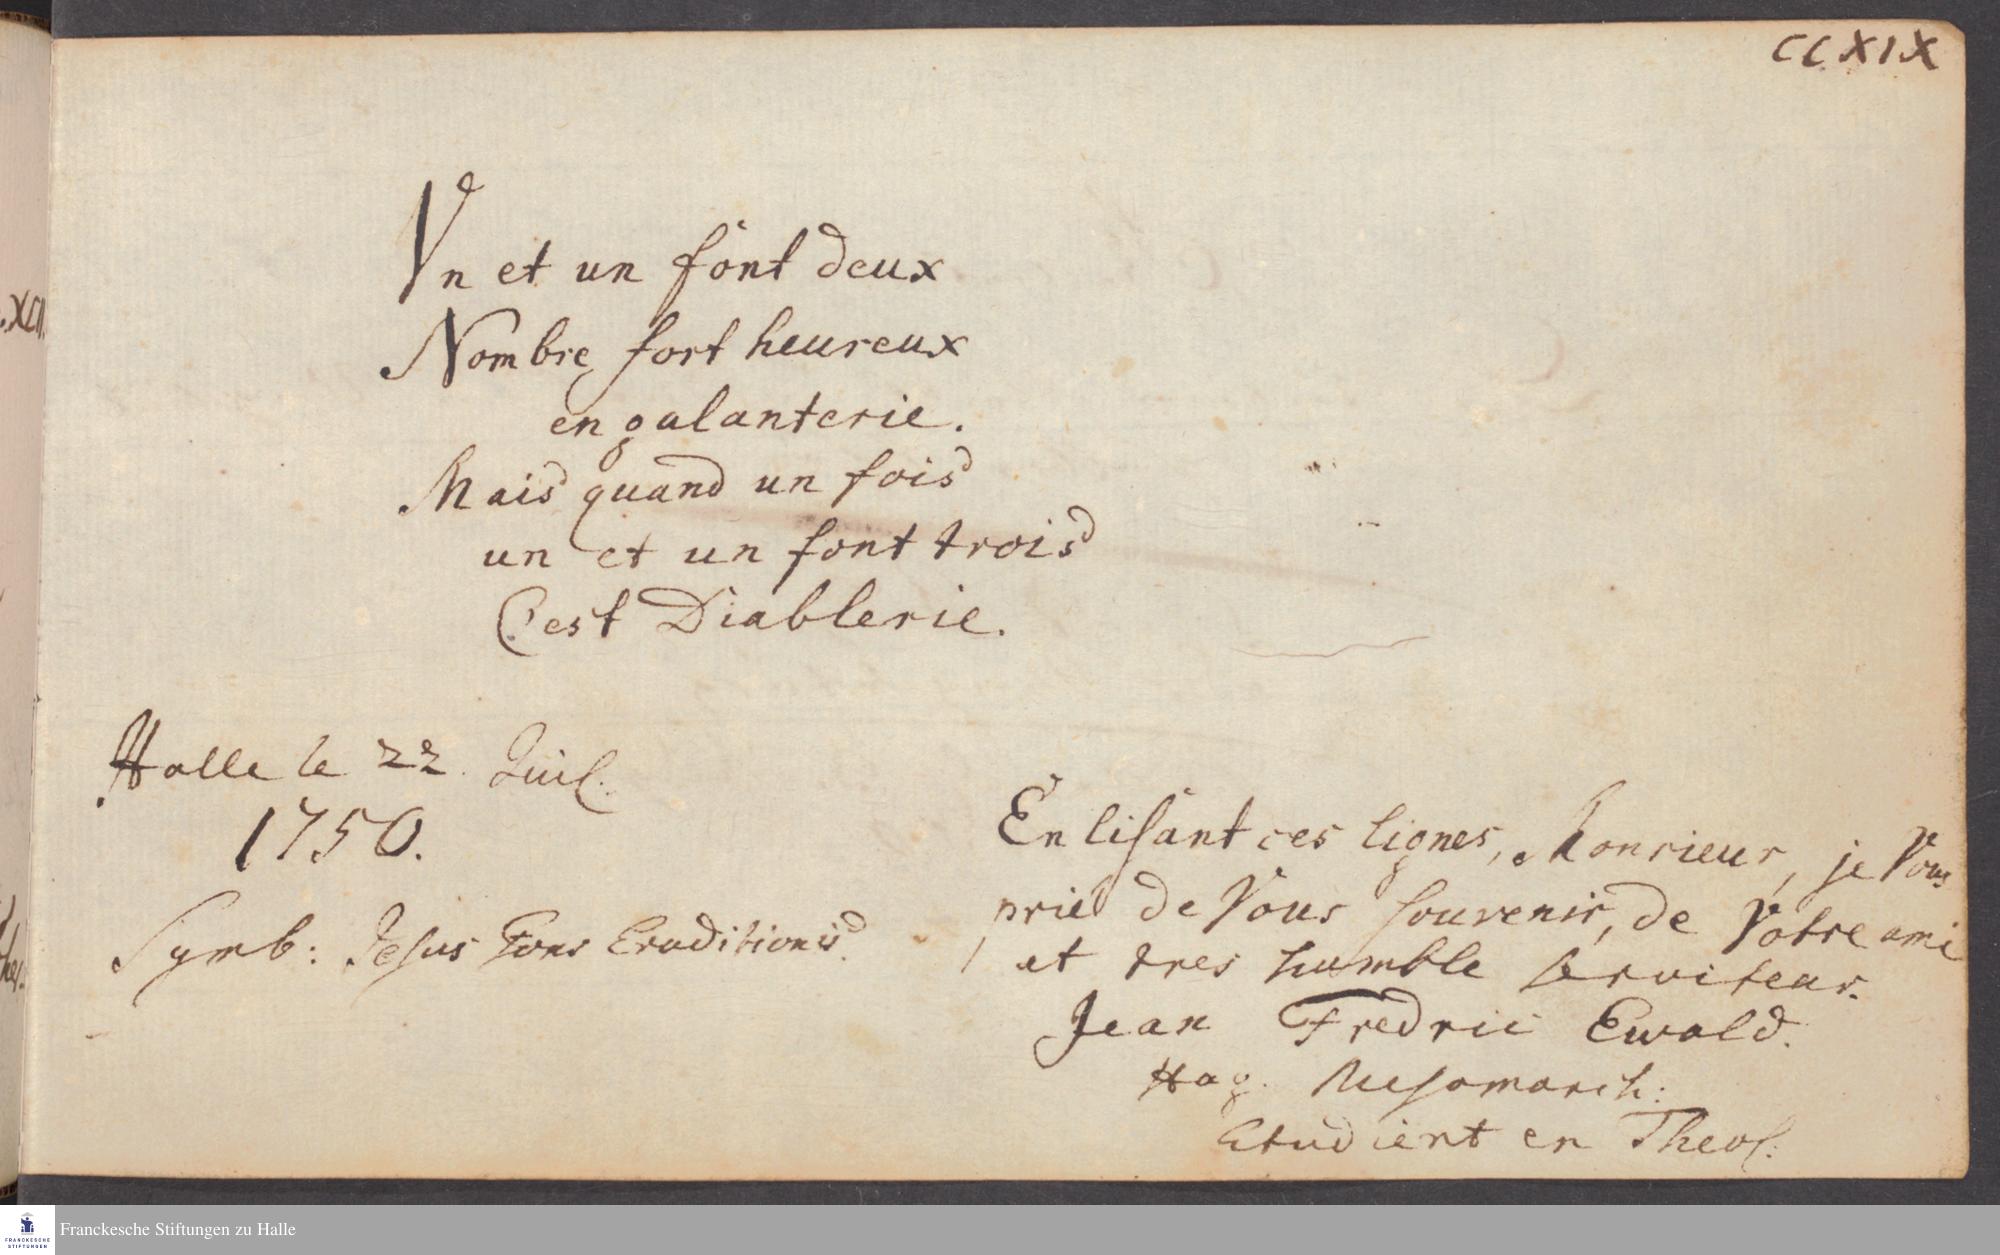 CCXIX
Un et un font deux
Nombre fort heureux
en galanterie.
Mais quand un fois
un et un font trois
C'est Diablerie.
Halle le 22. Juil.
1750.
Symb: Jesus Fons Eruditionis.
En lisant ces lignes, Monsieur, je Vous
prie de Vous souvenir, de Votre ami
et tres humble serviteur.
Jean Fredric Ewald.
Hag. Mesomarch:
Etudient en Theol:
.XCII.
Franckesche Stiftungen zu Halle
FRANCKESCHE
STIFTUNGEN